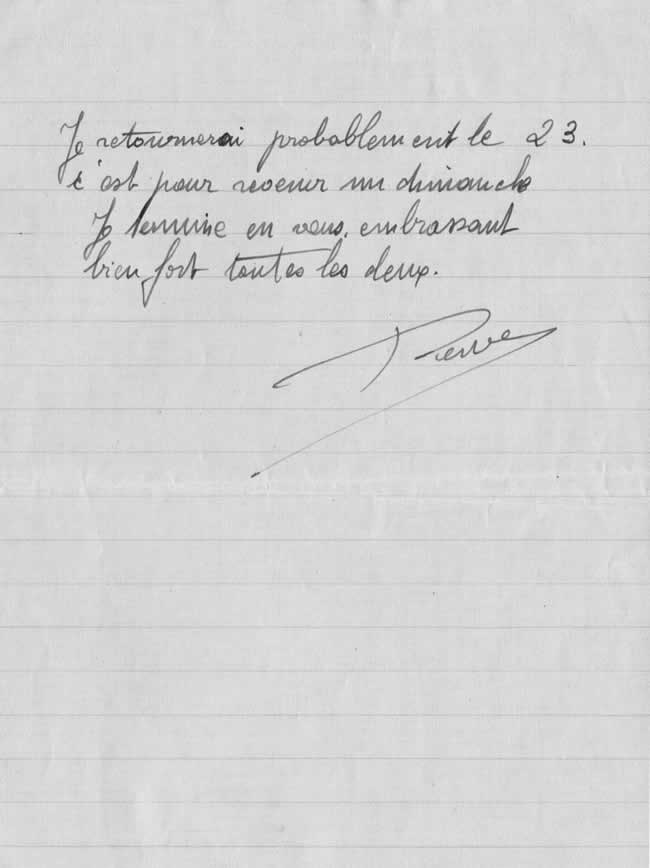 Je retournerai probablement le 23.
c'est pour revenir un dimanche
Je termine en vous embrassant
bien fort toutes les deux.
Pierre